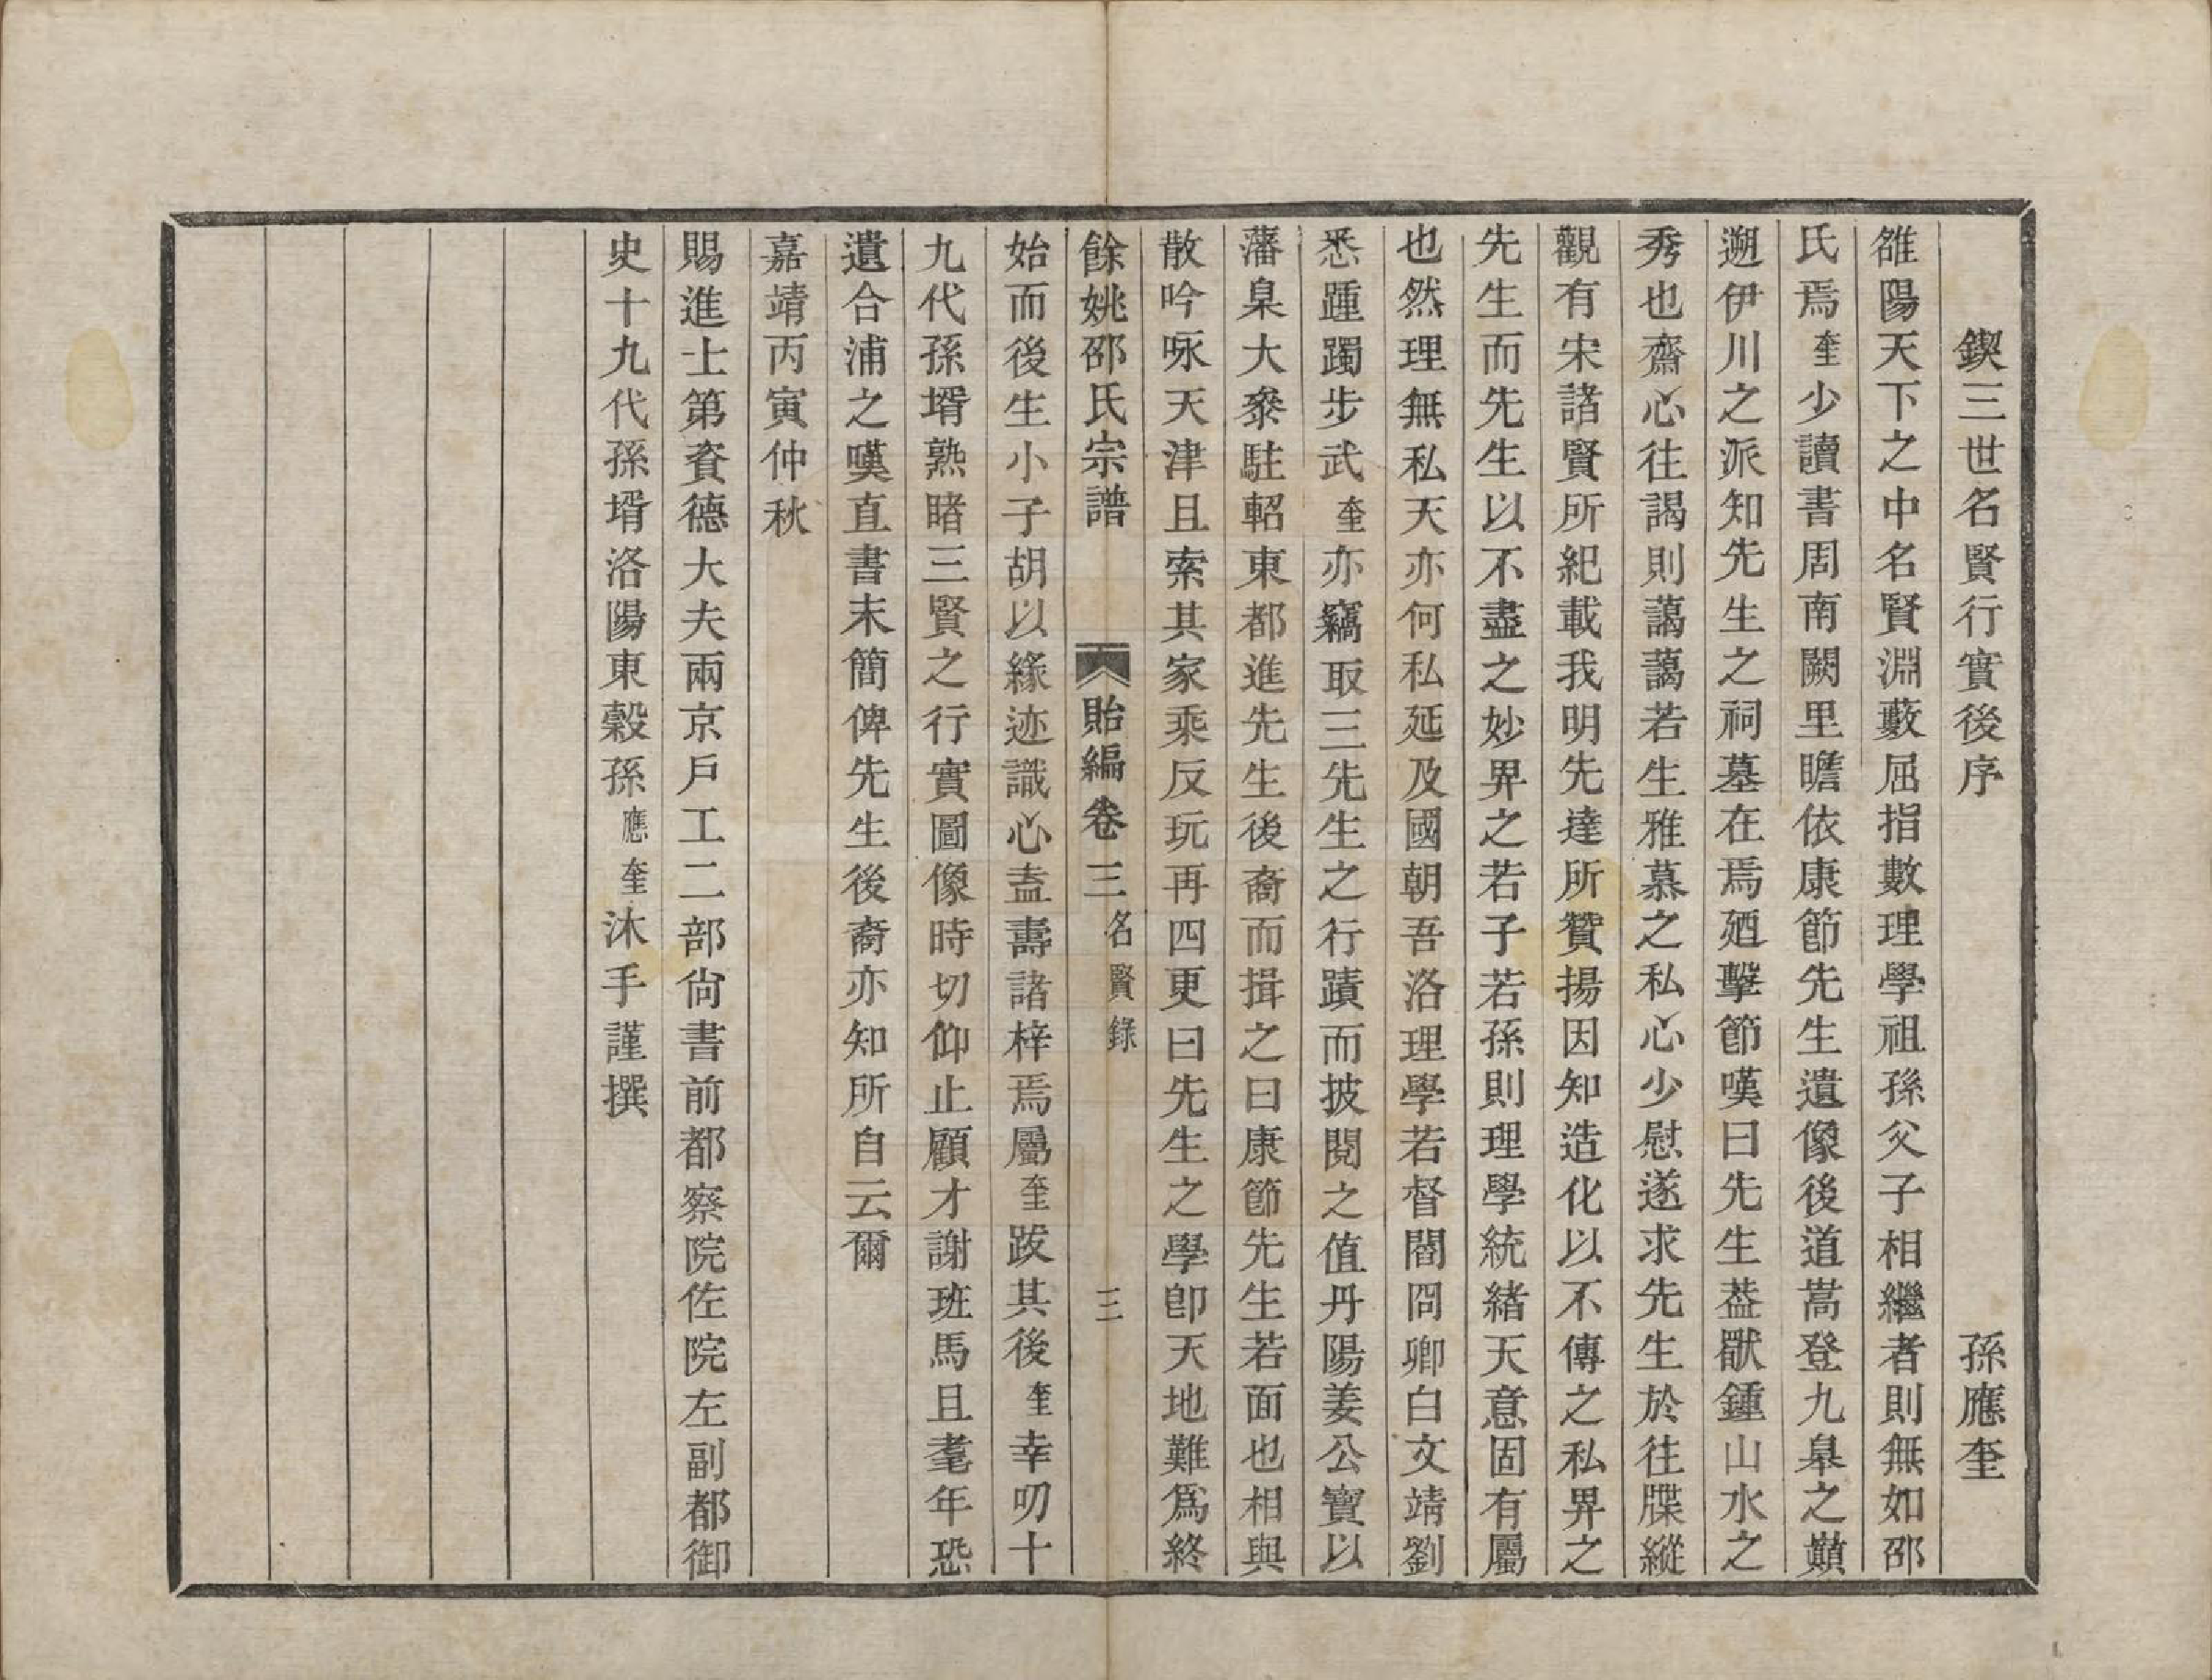 鍥三世名賢行實後序　孫應奎
雒陽天下之中名賢淵藪屈指數理學祖孫父子相繼者則無如邵
氏焉奎少讀書周南闕里瞻依康節先生遺像後道嵩登九皋之巔
遡伊川之派知先生之祠墓在焉廼擊節嘆曰先生葢厭鍾山水之
秀也齋心往謁則藹藹若生雅慕之私心少慰遂求先生於往牒縱
觀有宋諸賢所紀載我明先達所贊揚因知造化以不傳之私畀之
先生而先生以不盡之妙畀之若子若孫則理學統緒天意固有屬
也然理無私天亦何私延及國朝吾洛理學若督閻冏卿白文靖劉
悉踵躅步武奎亦竊取三先生之行蹟而披閱之值丹陽姜公寶以
藩臬大叅駐軺東都進先生後裔而揖之曰康節先生若面也相與
散吟咏天津且索其家乘反玩再四更曰先生之學卽天地難爲終
餘姚邵氏宗譜　貽編卷三名賢錄　三
始而後生小子胡以緣迹識心盍壽諸梓焉屬奎跋其後奎幸叨十
九代孫壻熟睹三賢之行實圖像時切仰止顧才謝班馬且耄年恐
遺合浦之嘆直書末簡俾先生後裔亦知所自云爾
嘉靖丙寅仲秋
賜進士第資德大夫兩京戶工二部尙書前都察院佐院左副都御
史十九代孫壻洛陽東穀孫應奎沐手謹撰